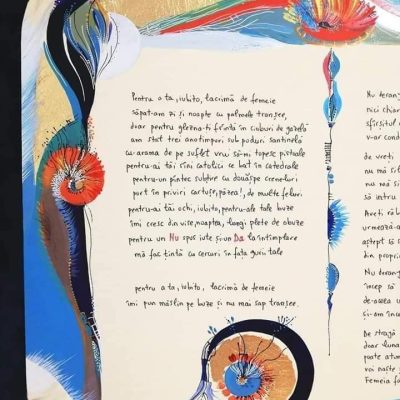 Pentru a ta, iubito, lacrimă de femeie
săpat-am zi și noapte cu palmele tranșee,
doar pentru glezna-ți frîntă în ciuburi de gazelă
am stat trei anotimpuri sub poduri santinelă
cu-arama de pe suflet vrui să-mi topesc pistoale
pentru-ai tăi sîni catolici ce bat în catedrale
pentru-un pîntec subțire cu douășpe crene-luri
port în priviri cartușe, de multe feluri
pentru-ai tăi ochi, iubito, pentru-ale tale buze
îmi cresc din vise, noaptea, lungi plete de obuze
pentru un Nu spus iute și un Da la întîmplare
mă fac țintă cu cercuri în fața gurii tale
pentru a ta, iubito, lacrimă de femeie
îmi pun măslin pe buze și nu mai sap tranșee.
Nu deran
nici chiar
sfîrșitul
v-ar cond
de vreți
nu mă si
nu mă si
să intru
Aveți răb
urmează-a
aștept să s
din propri
Nu deran
încep să
de-aceea u
și-am înc
De
doar luna
poate atun
voi naște
Femeia fa